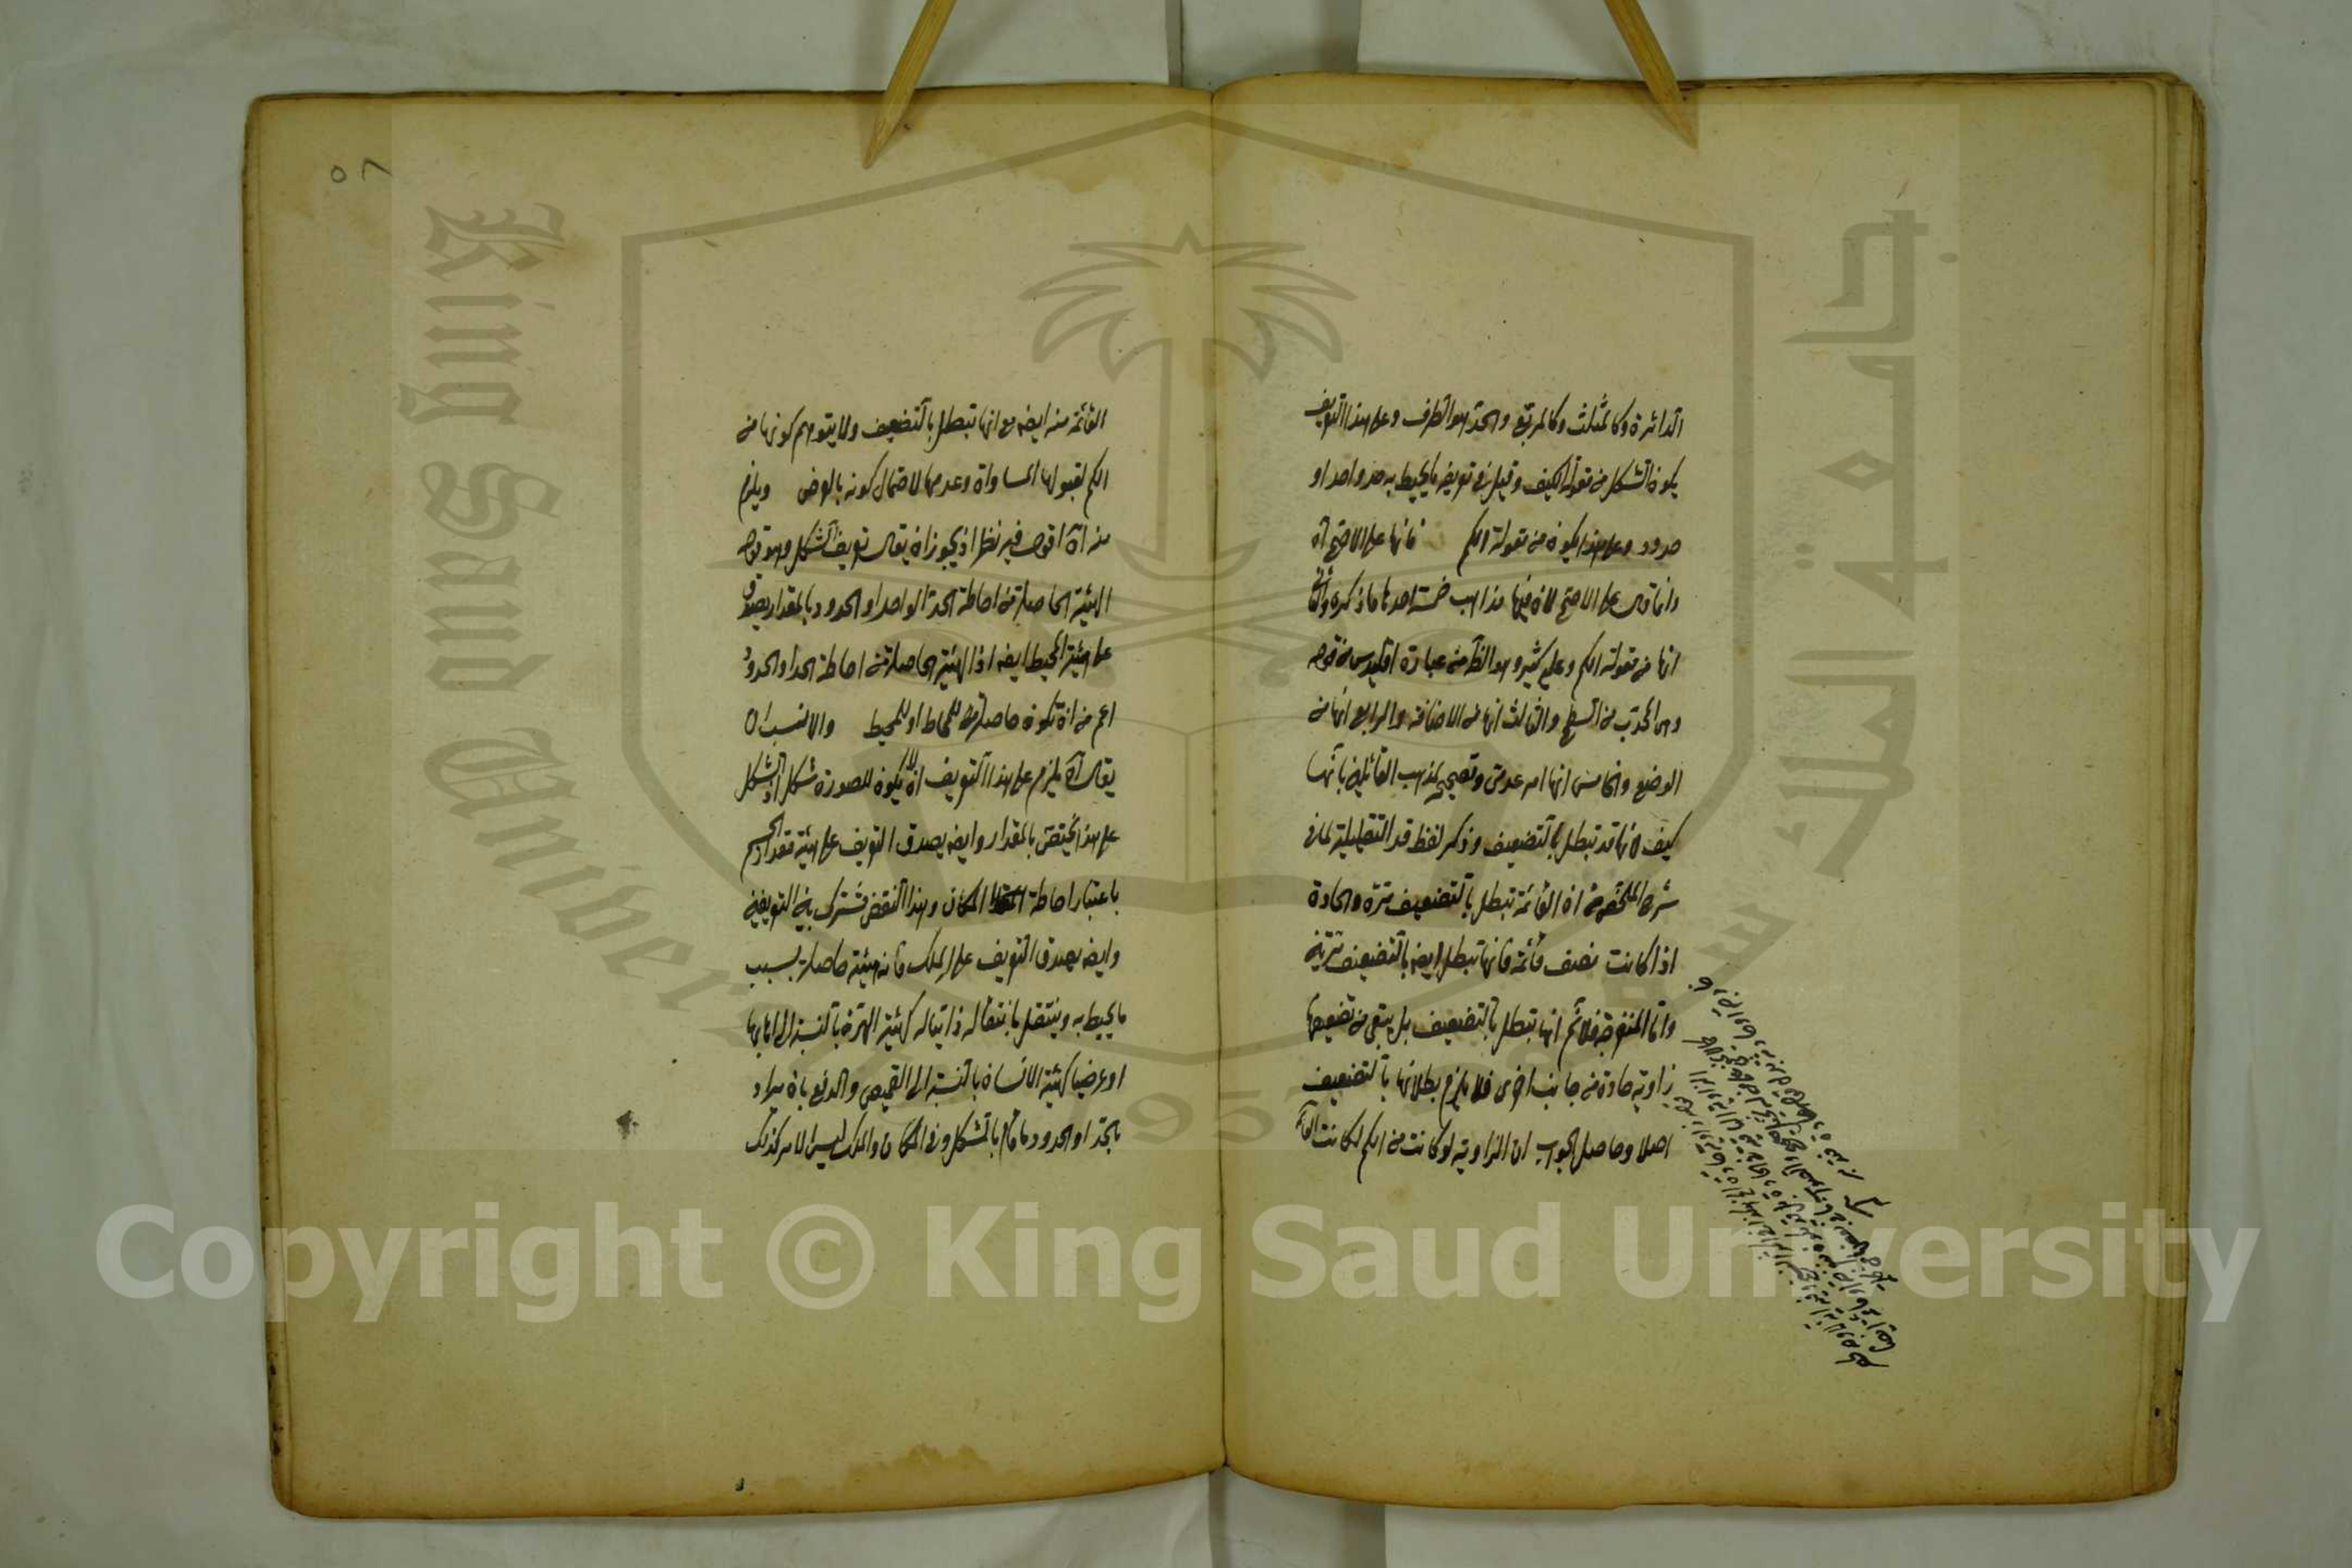 الدائرة وكالمثلث وكالمربع والحد هو الطرف وعلى هذا التعريف
يكون الشكل من مقولة الكيف وقيل في تعريفه ما يحيط به حد واحد او
حدود وعلى هذا يكون من مقولة الكم فانها على الاصح آه
وانما قال على الاصح لان فيها مذاهب خمسة احدها ما ذكره والثاني
انها من مقولة الكم وعليه كثير وهو الظ من عبارة اقليدس من قوله
وهي المحدب من السطح والثالث انها من الاضافة والرابع انها من
الوضع والخامس انها امر عدمي وتصحيح مذهب القائلين بانها
كيف لانها قد تبطل بالتضعيف وذكر لفظ قد التقليلية لما في
شرح الملخص من ان القائمة تبطل بالتضعيف مرة والحادة
اذا كانت نصف قائمة فانها تبطل ايضا بالتضعيف مرتين
واما المنفرجة فلانم انها تبطل بالتضعيف بل يبقى من تضعيفها
زاوية حادة من جانب اخرى فلا يلزم بطلانها بالتضعيف
اصلا وحاصل الجواب ان الزاوية لو كانت من الكم لكانت القائمة
٥٦
القائمة منه ايضه مع انها تبطل بالتضعيف ولا يتوهم كونها من
الكم لقبولها المساواة وعدمها لاحتمال كونه بالعرض ويلزم
منه آه اقول فيه نظر اذ يجوز ان يقال تعريف الشكل وهو قوله
الهيئة الحاصلة من احاطة الحد الواحد او الحدود بالمقدار يصدق
على هيئة المحيط ايضه اذ الهيئة الحاصلة من احاطة الحد او الحدود
اعم من ان تكون حاصلة للمحاط او للمحيط والانسب ان
يقال آه يلزم على هذا التعريف ان لا يكون للصورة شكل اذ الشكل
على هذا يختص بالمقدار وايضه يصدق التعريف على هيئة مقدار الجسم
باعتبار احاطة المكان وهذا النقض مشترك بين التعريفين
وايضه يصدق التعريف على الملك فانه هيئة حاصلة بسبب
ما يحيط به وينتقل بانتقاله ذاتيا له كهيئة الهرة بالنسبة الى اهابها
او عرضيا كهيئة الانسان بالنسبة الى القميص والدفع بان يراد
بالحد او الحدود ما قام بالشكل وفي المكان والملك ليس الامر كذلك
Copyright © King Saud University
King Saud University
جامعة الملك سعود
1957